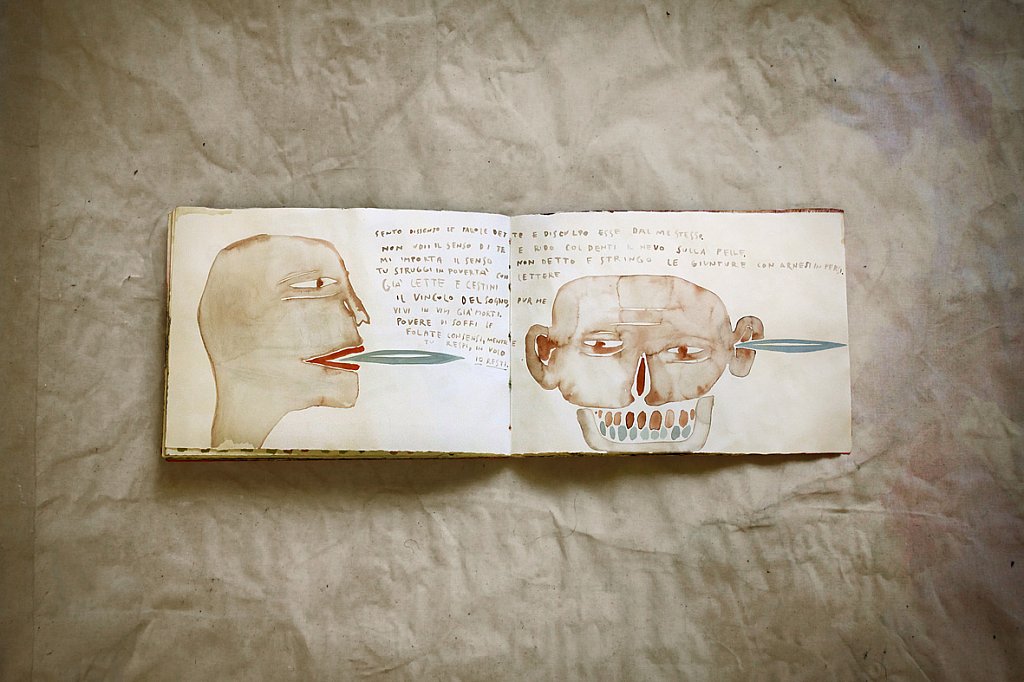 SENTO DISSENTO LE PAROLE DETTE E DISCULPO ESSE DAL ME STESSO.
NON ODI IL SENSO DI TE E RIDO COI DENTI IL NEVO SULLA PELLE,
MI IMPORTA IL SENSO NON DETTO E STRINGO LE GIUNTURE CON ARNESI
TU STRUGGI IN POVERTÀ CON LETTERE
GIÀ LETTE E CESTINI
IL VINCOLO DEL SOGNO, PUR ME
VIVI IN VIVI GIÀ MORTI.
POVERE DI SOFFI LE
FOLATE CONSENSI, MENTRE
TU IN VOLO
IO RESTI.